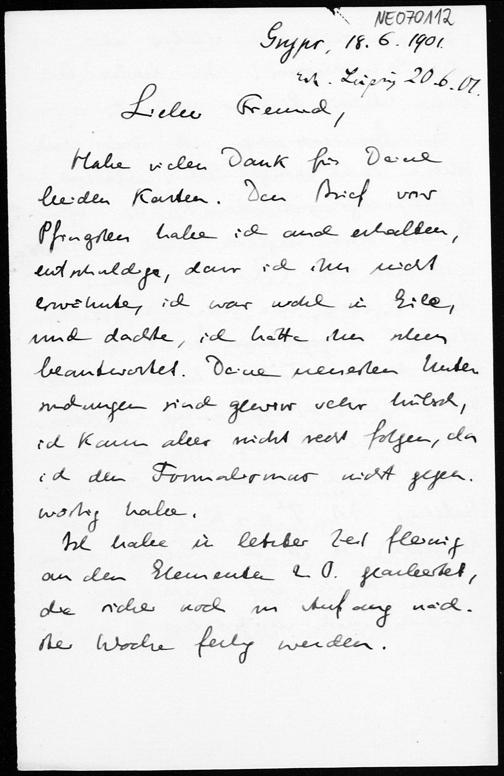 NE070112
Gryps, 18. 6. 1901.
erh. Leipzig 20. 6. 01.
Lieber Freund,
Habe vielen Dank für Deine
beiden Karten. Den Brief vor
Pfingsten habe ich auch erhalten,
entschuldige, dass ich ihn nicht
erwähnte, ich war wohl in Eile,
und dachte, ich hätte ihn schon
beantwortet. Deine neuesten Unter
suchungen sind gewiss sehr hübsch,
ich kann aber nicht recht folgen, da
ich den Formalismus nicht gegen-
wärtig habe.
Ich habe in letzter Zeit fleissig
an den Elementen d. 0. gearbeitet,
die sicher noch im Anfang näch-
ster Woche fertig werden.